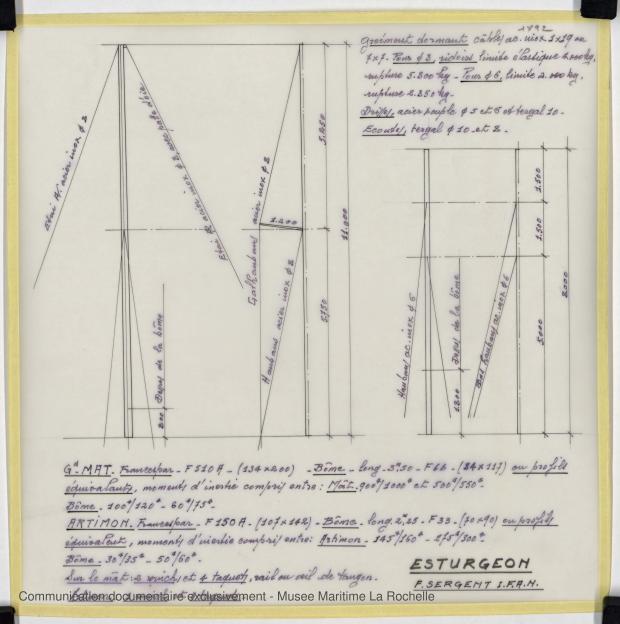 1792
Gréément dormant câbles ac. inox 1x19 ou
7x7. Pour φ 8, ridoirs, limite élastique
rupture 5.300 kg - Pour φ 6, limite 2.000 kg,
rupture 2.850 kg-
Drisses, acier souple φ 5 et 6 et tergal 10-
Ecoutes, tergal φ 10 et 8.
Etai AV. acier inox φ 8
Etai AR. acier inox φ 8, avec patte d'oie
Galhaubans acier inox φ 8
1.200
5.250
11.000
5.750
Haubans acier inox φ 8
Dessus de la bôme
800
1.500
1.500
5.000
8.000
Haubans ac. inox φ 6
Dessus de la bôme
Bas haubans ac. inox φ 6
1.800
Gd MAT. Francespar - F 510 A - (134x200) - Bôme - long. 3m50 - F66 - (84x117) ou profils
équivalents, moments d'inertie compris entre: Mât 900⁴/1000⁴ et 500⁴/550⁴-
Bôme - 100⁴/120⁴ - 60⁴/75⁴-
ARTIMON. Francespar - F 150 A - (107x142) - Bôme - long. 2m25 - F 33 - (70x90) ou profils
équivalent, moments d'inertie compris entre: Artimon - 145⁴/160⁴ - 275⁴/300⁴-
Bôme - 30⁴/35⁴ - 50⁴/60⁴-
Sur le mât: 2 winchs et 4 taquets, rail ou œil de tangon.
ESTURGEON
F. SERGENT I.F.A.N.
Communication documentaire exclusivement - Musee Maritime La Rochelle